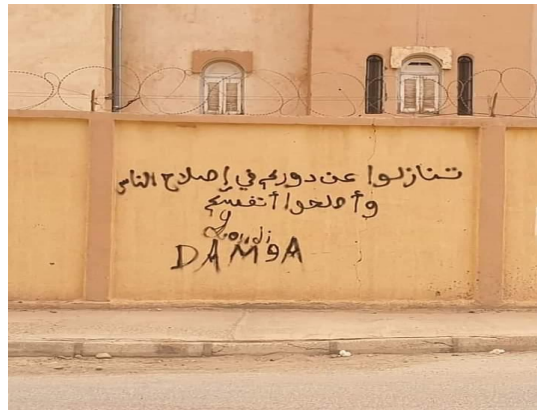 تنازلوا عن دوركم في إصلاح الناس
وأصلحوا أنفسكم
DAM9A